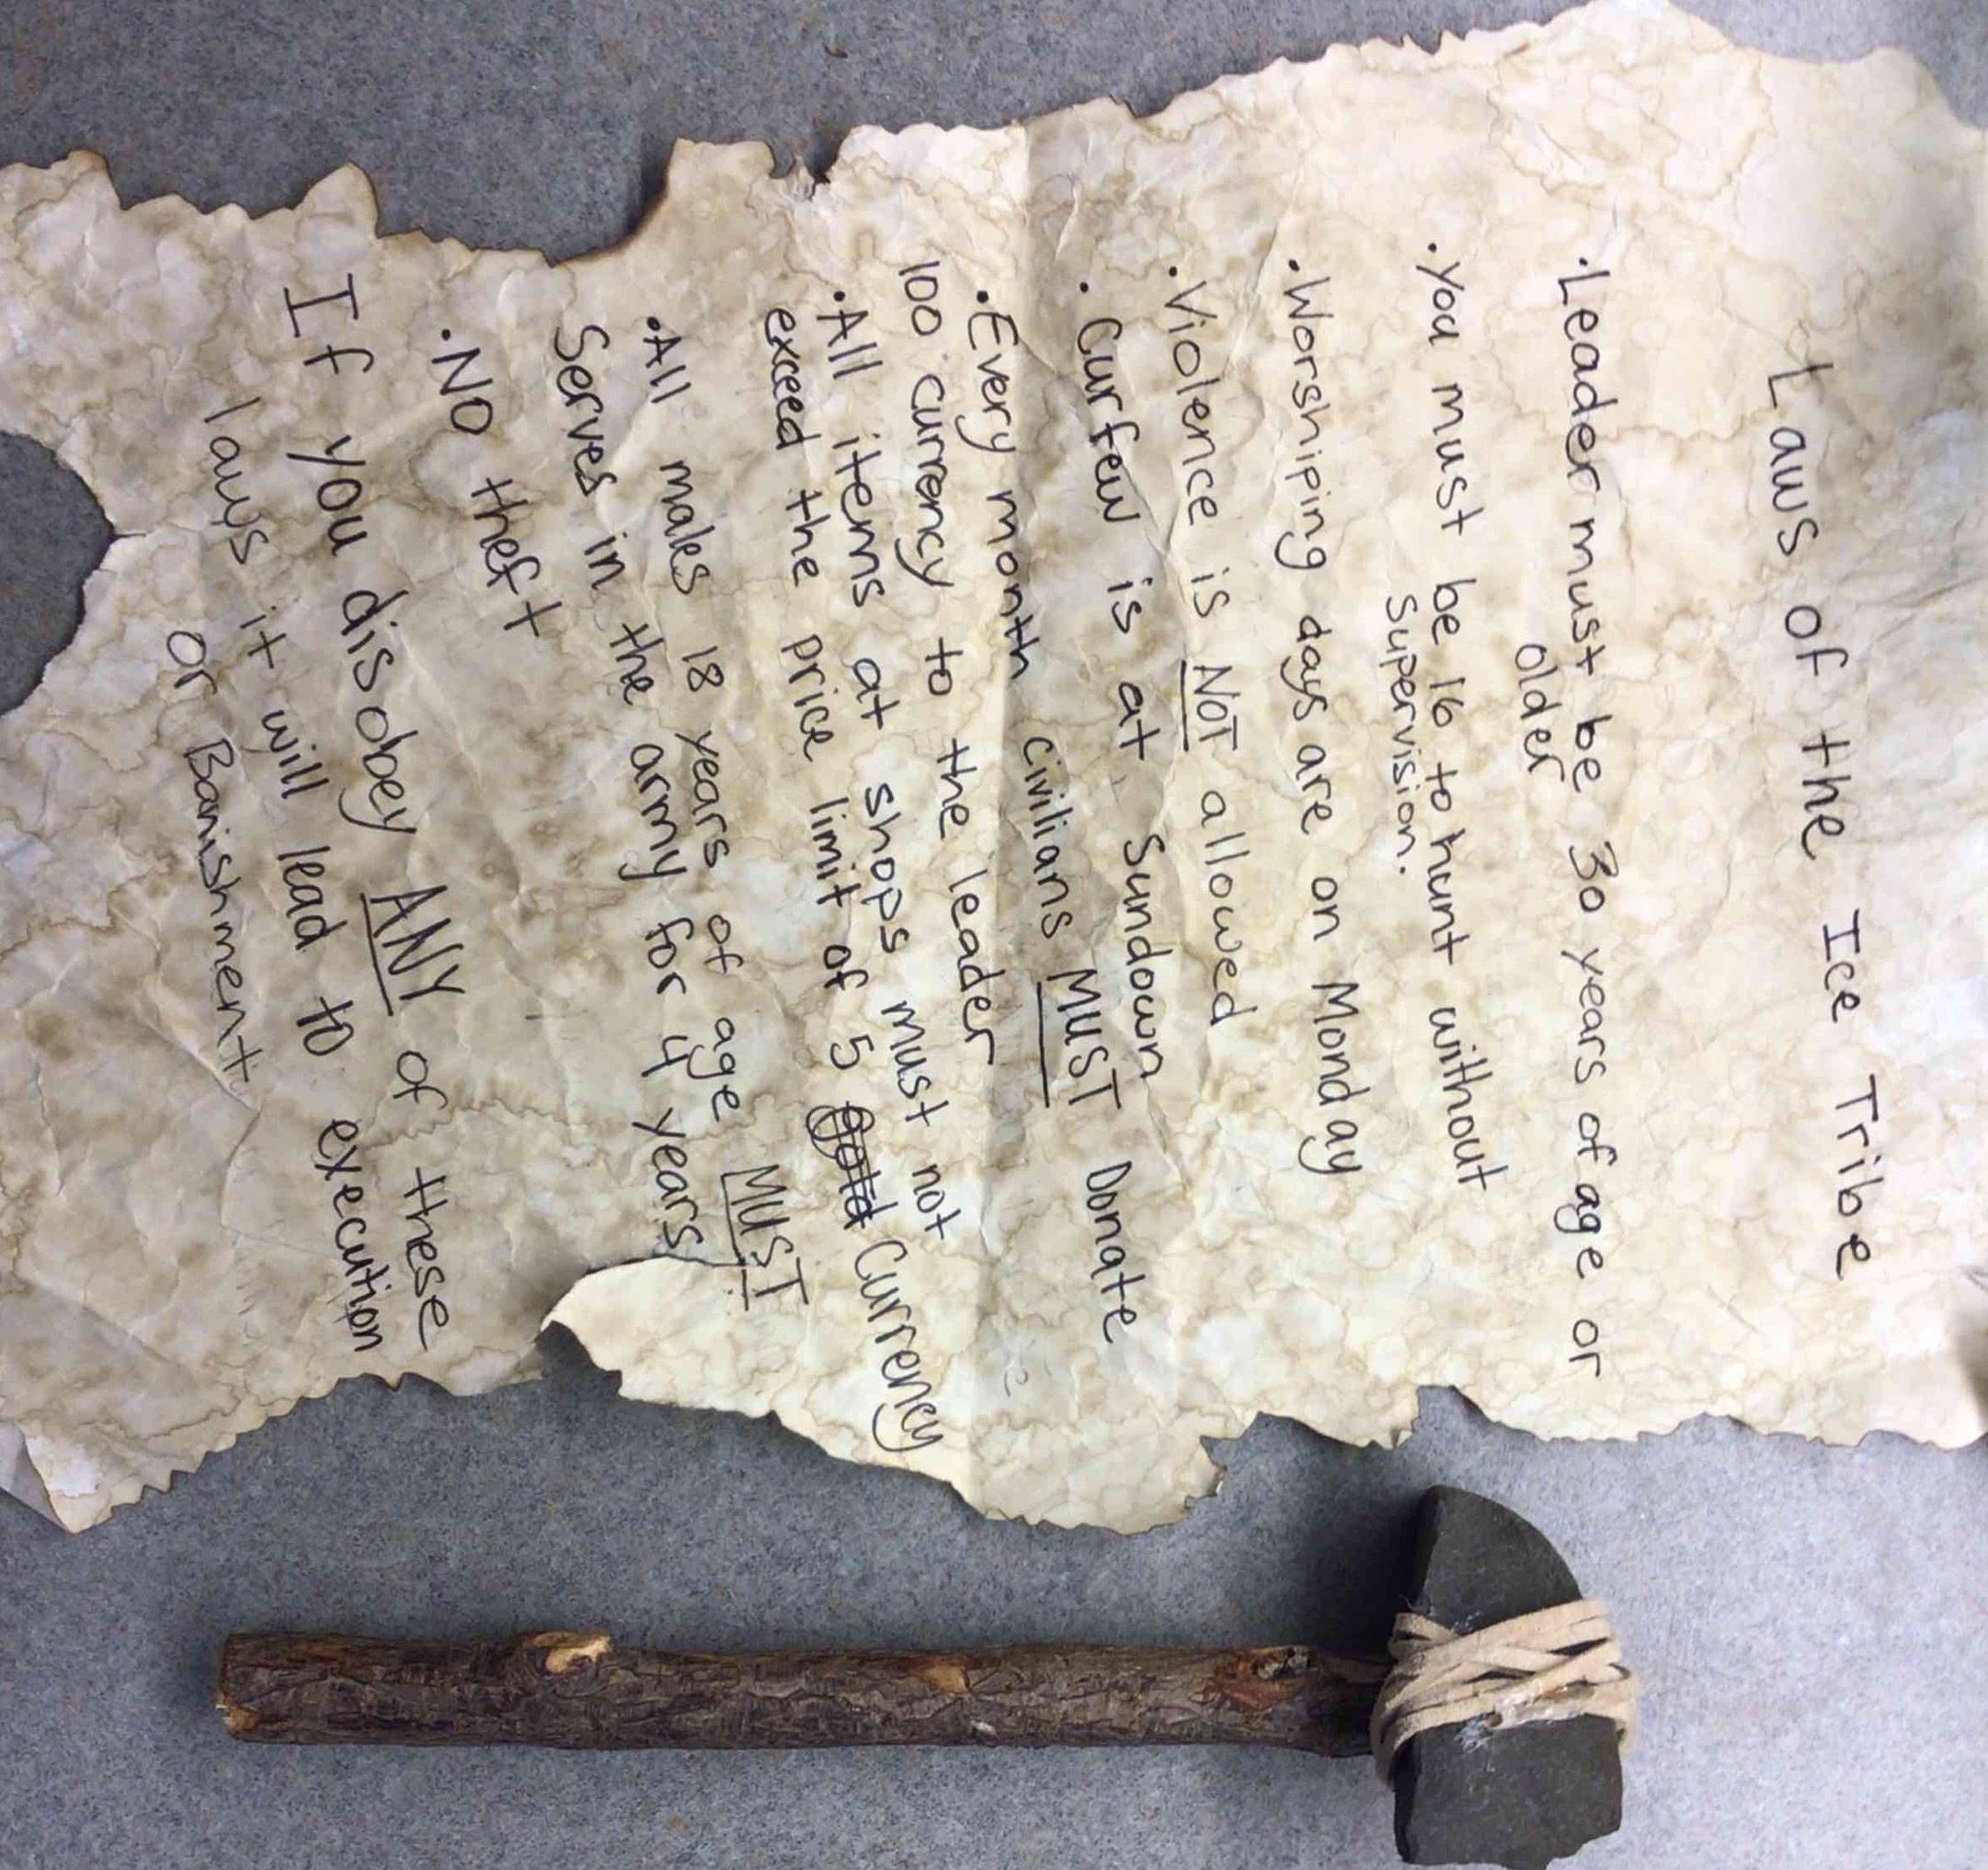 Laws of the Ice Tribe
·Leader must be 30 years of age or
older
·you must be 16 to hunt without
supervision.
·Worshiping days are on Monday
·Violence is NOT allowed
·Curfew is at sundown
·Every month civilians MUST Donate
100 currency to the leader
·All items at shops must not
exceed the price limit of 5 Currency
·All males 18 years of age MUST
Serves in the army for 4 years
·NO theft
If you disobey ANY of these
laws it will lead to execution
or Banishment